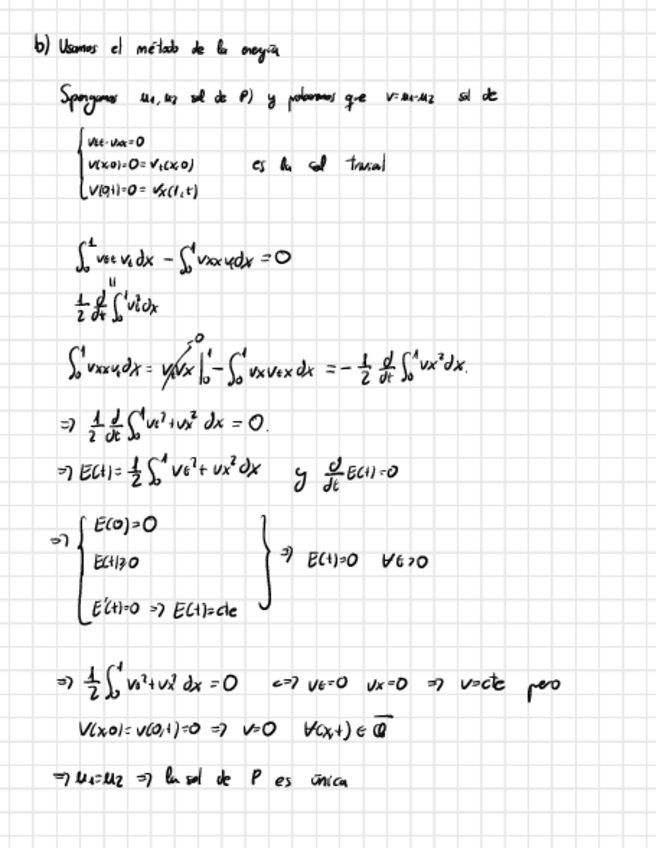 b) Usamos el método de la energía
Spongamos u₁, u₂ sol de P) y probaremos que v=u₁-u₂ sol de
{ vtt-vxx=0
v(x,0)=0=vt(x,0) es la sol trivial
v(0,t)=0=vx(1,t)
∫₀¹ vtt vt dx - ∫₀¹ vxx vt dx = 0
||
1/2 d/dt ∫₀¹ vt² dx
∫₀¹ vxx vt dx = vt vx |₀¹ →0 - ∫₀¹ vx vtx dx = - 1/2 d/dt ∫₀¹ vx² dx.
=> 1/2 d/dt ∫₀¹ vt² + vx² dx = 0.
=> E(t) = 1/2 ∫₀¹ vt² + vx² dx y d/dt E(t)=0
=> { E(0)=0
E(t)≥0 } => E(t)=0 ∀t>0
E'(t)=0 => E(t)=cte
=> 1/2 ∫₀¹ vt² + vx² dx = 0 <=> vt=0 vx=0 => v=cte pero
V(x,0)=v(0,t)=0 => v=0 ∀(x,t) ∈ Q̅
=> u₁=u₂ => la sol de P es única